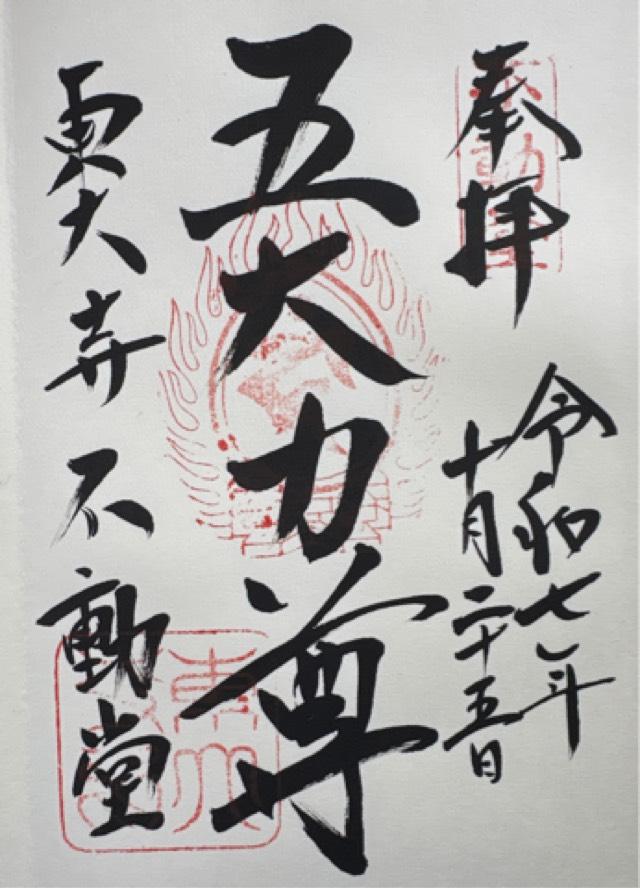 奉拝
令和七年
十月二十五日
五大力尊
東大寺不動堂
不動堂